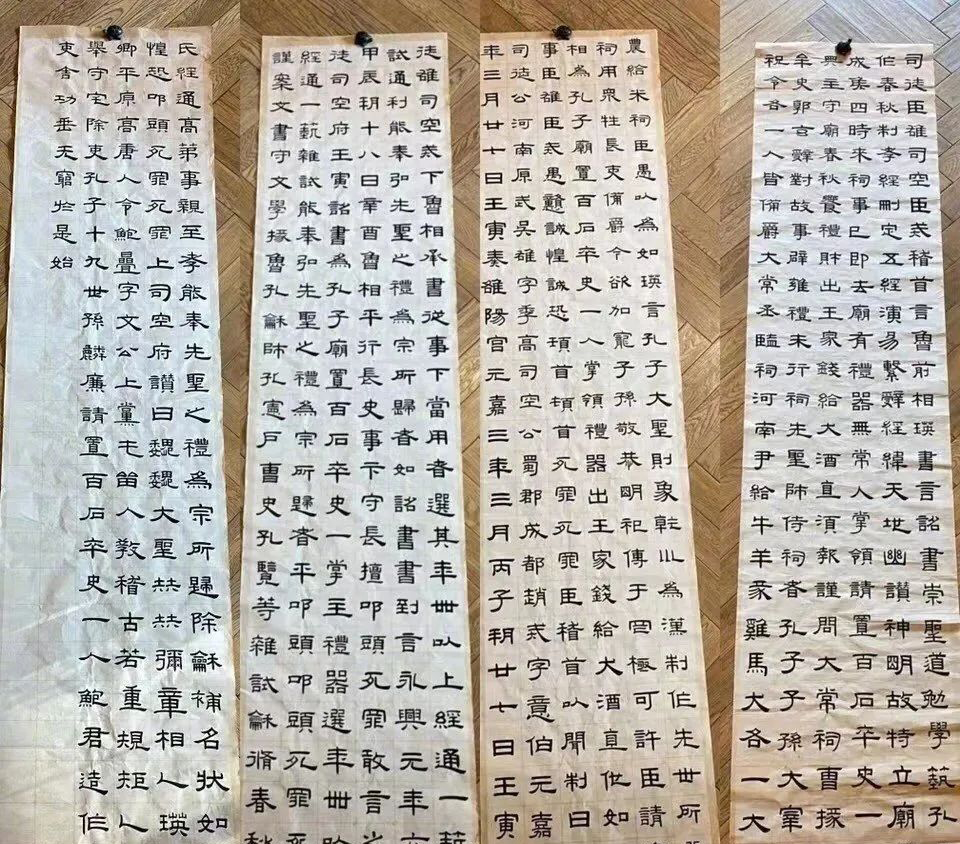 司徒臣雄司空臣戒稽首言魯前相瑛書言詔書崇聖道勉學藝孔
伯春秋制孝經刪定五經演易繫辭經緯天地幽讚神明故特立廟
成侯四時來祠事已即去廟有禮器無常人掌領請置百石卒史一
典主守廟春秋饗禮財出王家錢給大酒直須報謹問大常祠曹掾
牟史郭玄辭對故事辟雍禮未行祠先聖師侍祠者孔子子孫大宰
祝令各一人皆備爵大常丞監祠河南尹給牛羊豕雞馬大各一大
農給米祠臣愚以為如瑛言孔子大聖則象乾川為漢制作先世所
祠用眾牲長吏備爵令欲加寵子孫敬恭明祀傳于罔極可許臣請
相為孔子廟置百石卒史一人掌領禮器出王家錢給大酒直他如
事臣雄臣戒愚戇誠惶誠恐頓首頓首死罪死罪臣稽首以聞制曰
司徒公河南原武吳雄字季高司空公蜀郡成都趙戒字意伯元嘉
年三月廿十日王寅奏雒陽宮元嘉三年三月丙子朔廿七日王寅
徒雄司空戒下魯相承書從事下當用者選其年卌以上經通一藝
試通利能奉弘先聖之禮為宗所歸者如詔書書到言永興元年六
甲辰朔十八日辛酉魯相平行長史事卞守長擅叩頭死罪敢言之
徒司空府王寅詔書為孔子廟置百石卒史一掌主禮器選年卌以
經通一藝雜試能奉弘先聖之禮為宗所歸者平叩頭叩頭死罪
謹案文書守文學掾魯孔龢師孔憲戶曹史孔覽等雜試龢脩春秋
氏經通高第事親至孝能奉先聖之禮為宗所歸除龢補名狀如
惶恐叩頭死罪死罪上司空府讚曰巍巍大聖赫赫彌章相人瑛
卿平原高唐人令鮑疊字文公上黨屯留人教稽古若重規矩人
舉守宅除吏孔子十九世孫麟廉請置百石卒史一人鮑君造作
吏舍功垂无窮於是始